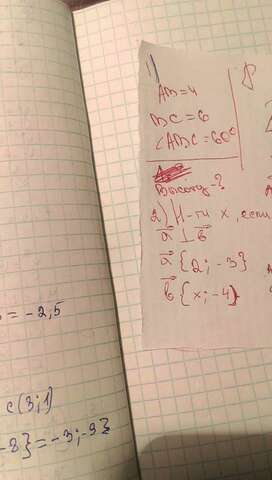 1)
AB=4
BC=6
∠ABC=60°
Высоту-?
2) Н-ти x, если
a⃗ ⊥ b⃗
a⃗ {2; -3}
b⃗ {x; -4}
= -2,5
c(3;1)
-8}=-3;-9}